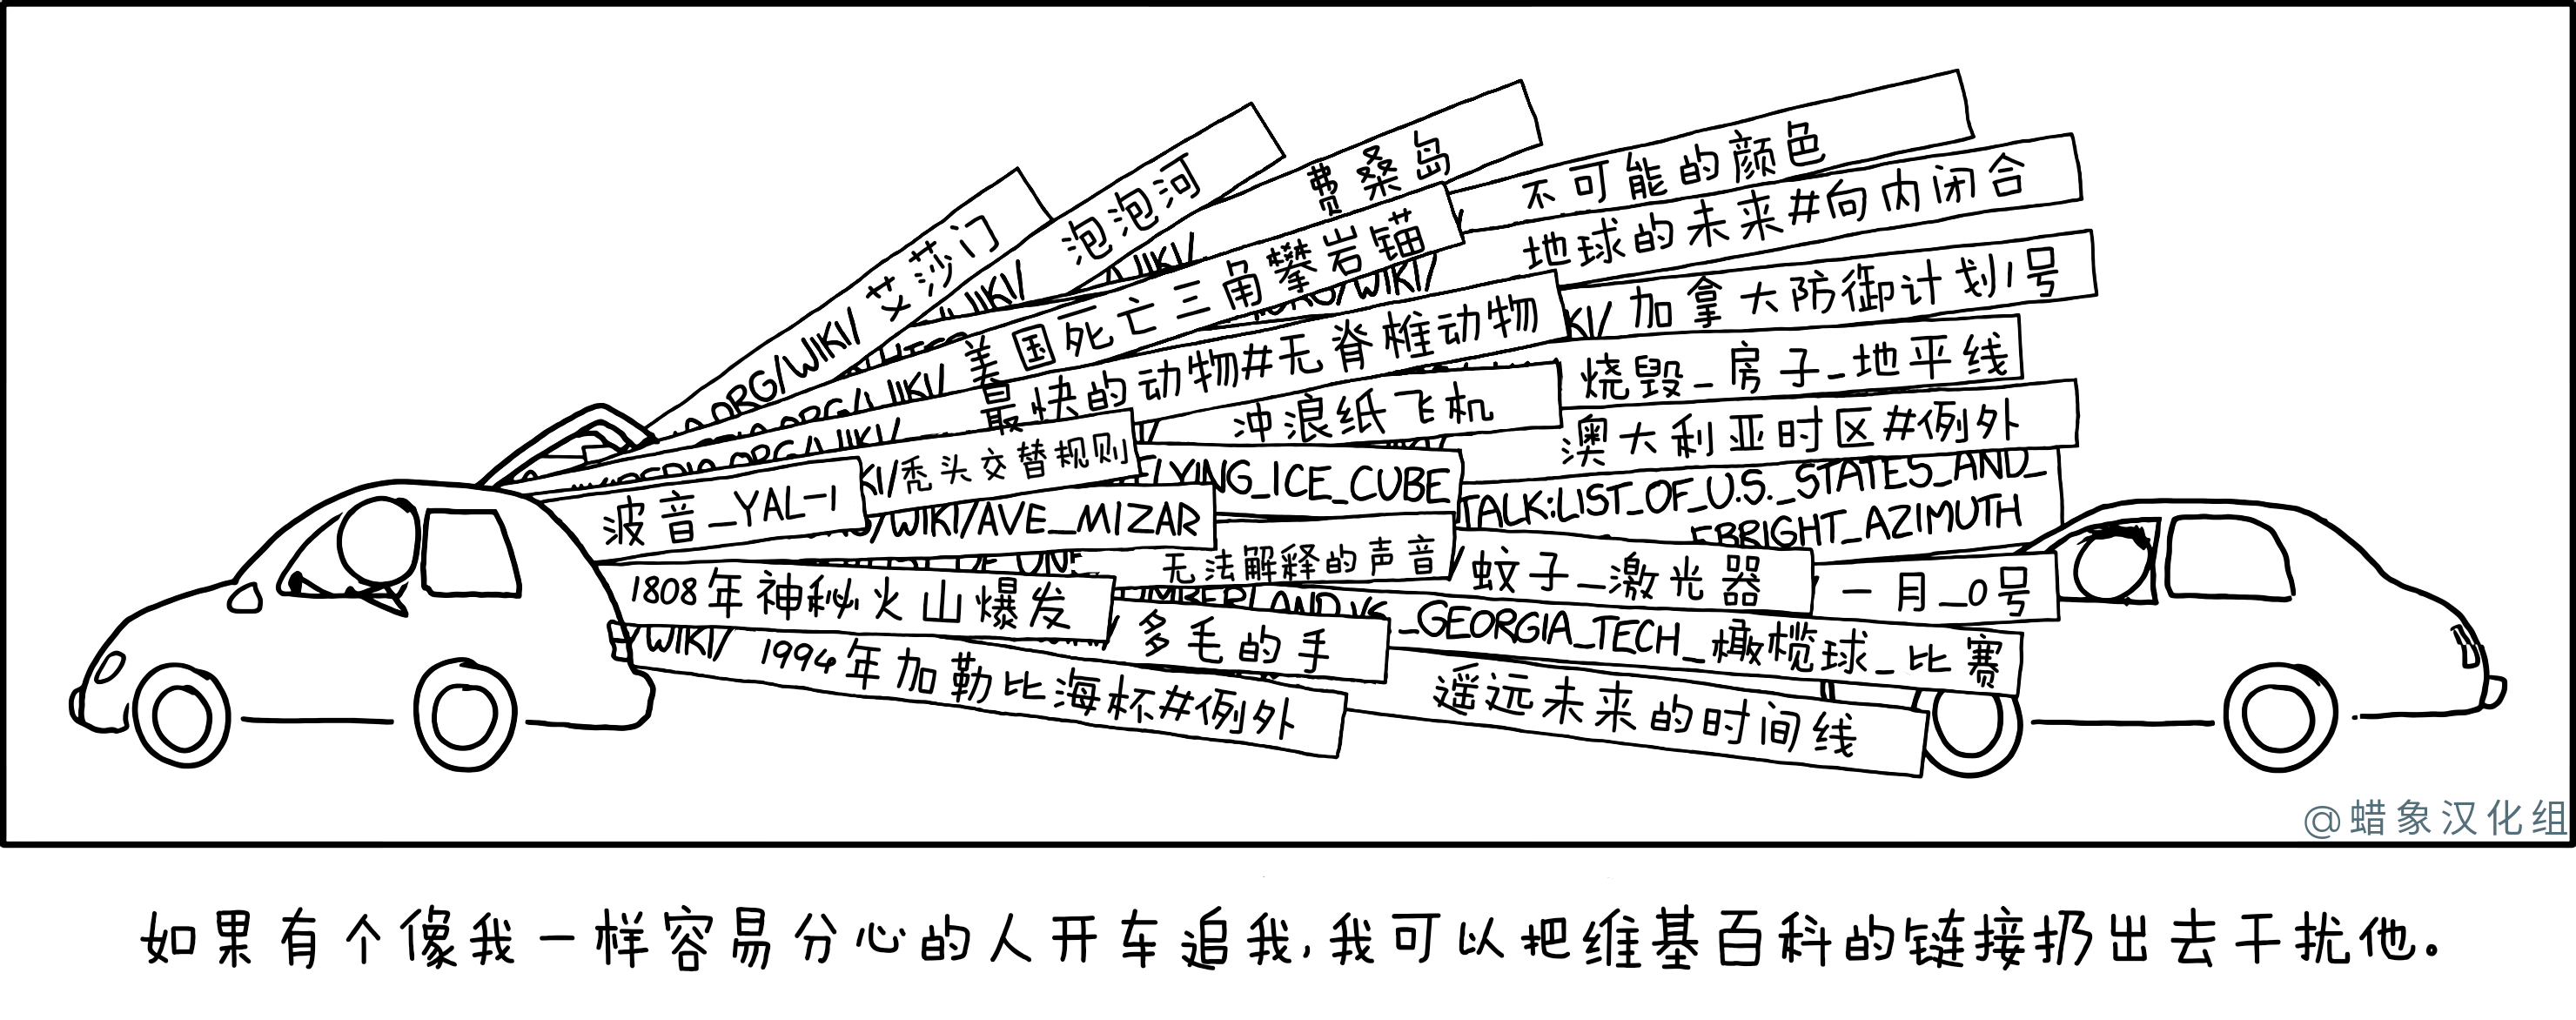 ORG/WIKI/艾莎门
WIKI/ 泡泡河
WIKI/ 费桑岛
不可能的颜色
地球的未来#向内闭合
WIKI/ 美国死亡三角攀岩锚
WIKI/
KI/ 加拿大防御计划1号
ORG/WIKI/ 最快的动物#无脊椎动物
烧毁_房子_地平线
冲浪纸飞机
澳大利亚时区#例外
KI/秃头交替规则
LYING_ICE_CUBE
TALK:LIST_OF_U.S._STATES_AND_
EBRIGHT_AZIMUTH
波音_YAL-1
/WIKI/AVE_MIZAR
无法解释的声音
蚊子_激光器
一月_0号
1808年神秘火山爆发
MBERLAND_VS_GEORGIA_TECH_橄榄球_比赛
多毛的手
/WIKI/ 1994年加勒比海杯#例外
遥远未来的时间线
@蜡象汉化组
如果有个像我一样容易分心的人开车追我,我可以把维基百科的链接扔出去干扰他。